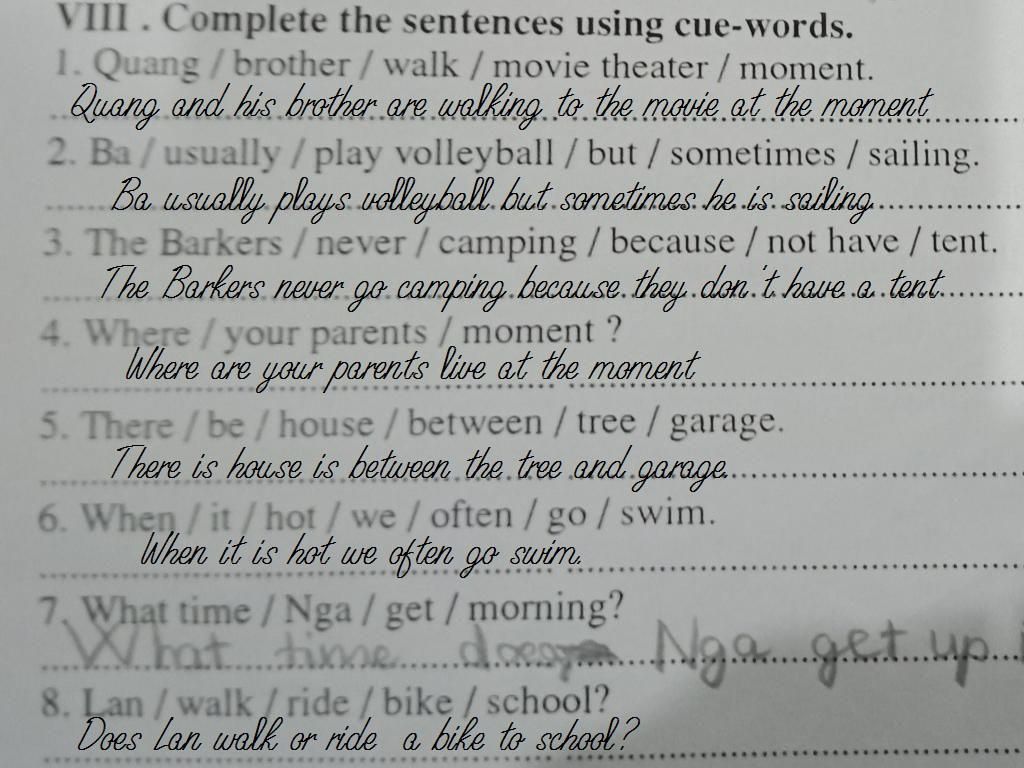 VIII . Complete the sentences using cue-words.
1. Quang / brother / walk / movie theater / moment.
Quang and his brother are walking to the movie at the moment
2. Ba / usually / play volleyball / but / sometimes / sailing.
Ba usually plays volleyball but sometimes he is sailing
3. The Barkers / never / camping / because / not have / tent.
The Barkers never go camping because they don't have a tent
4. Where / your parents / moment ?
Where are your parents live at the moment
5. There / be / house / between / tree / garage.
There is house is between the tree and garage
6. When / it / hot / we / often / go / swim.
When it is hot we often go swim.
7. What time / Nga / get / morning?
What time does Nga get up
8. Lan / walk / ride / bike / school?
Does Lan walk or ride a bike to school?